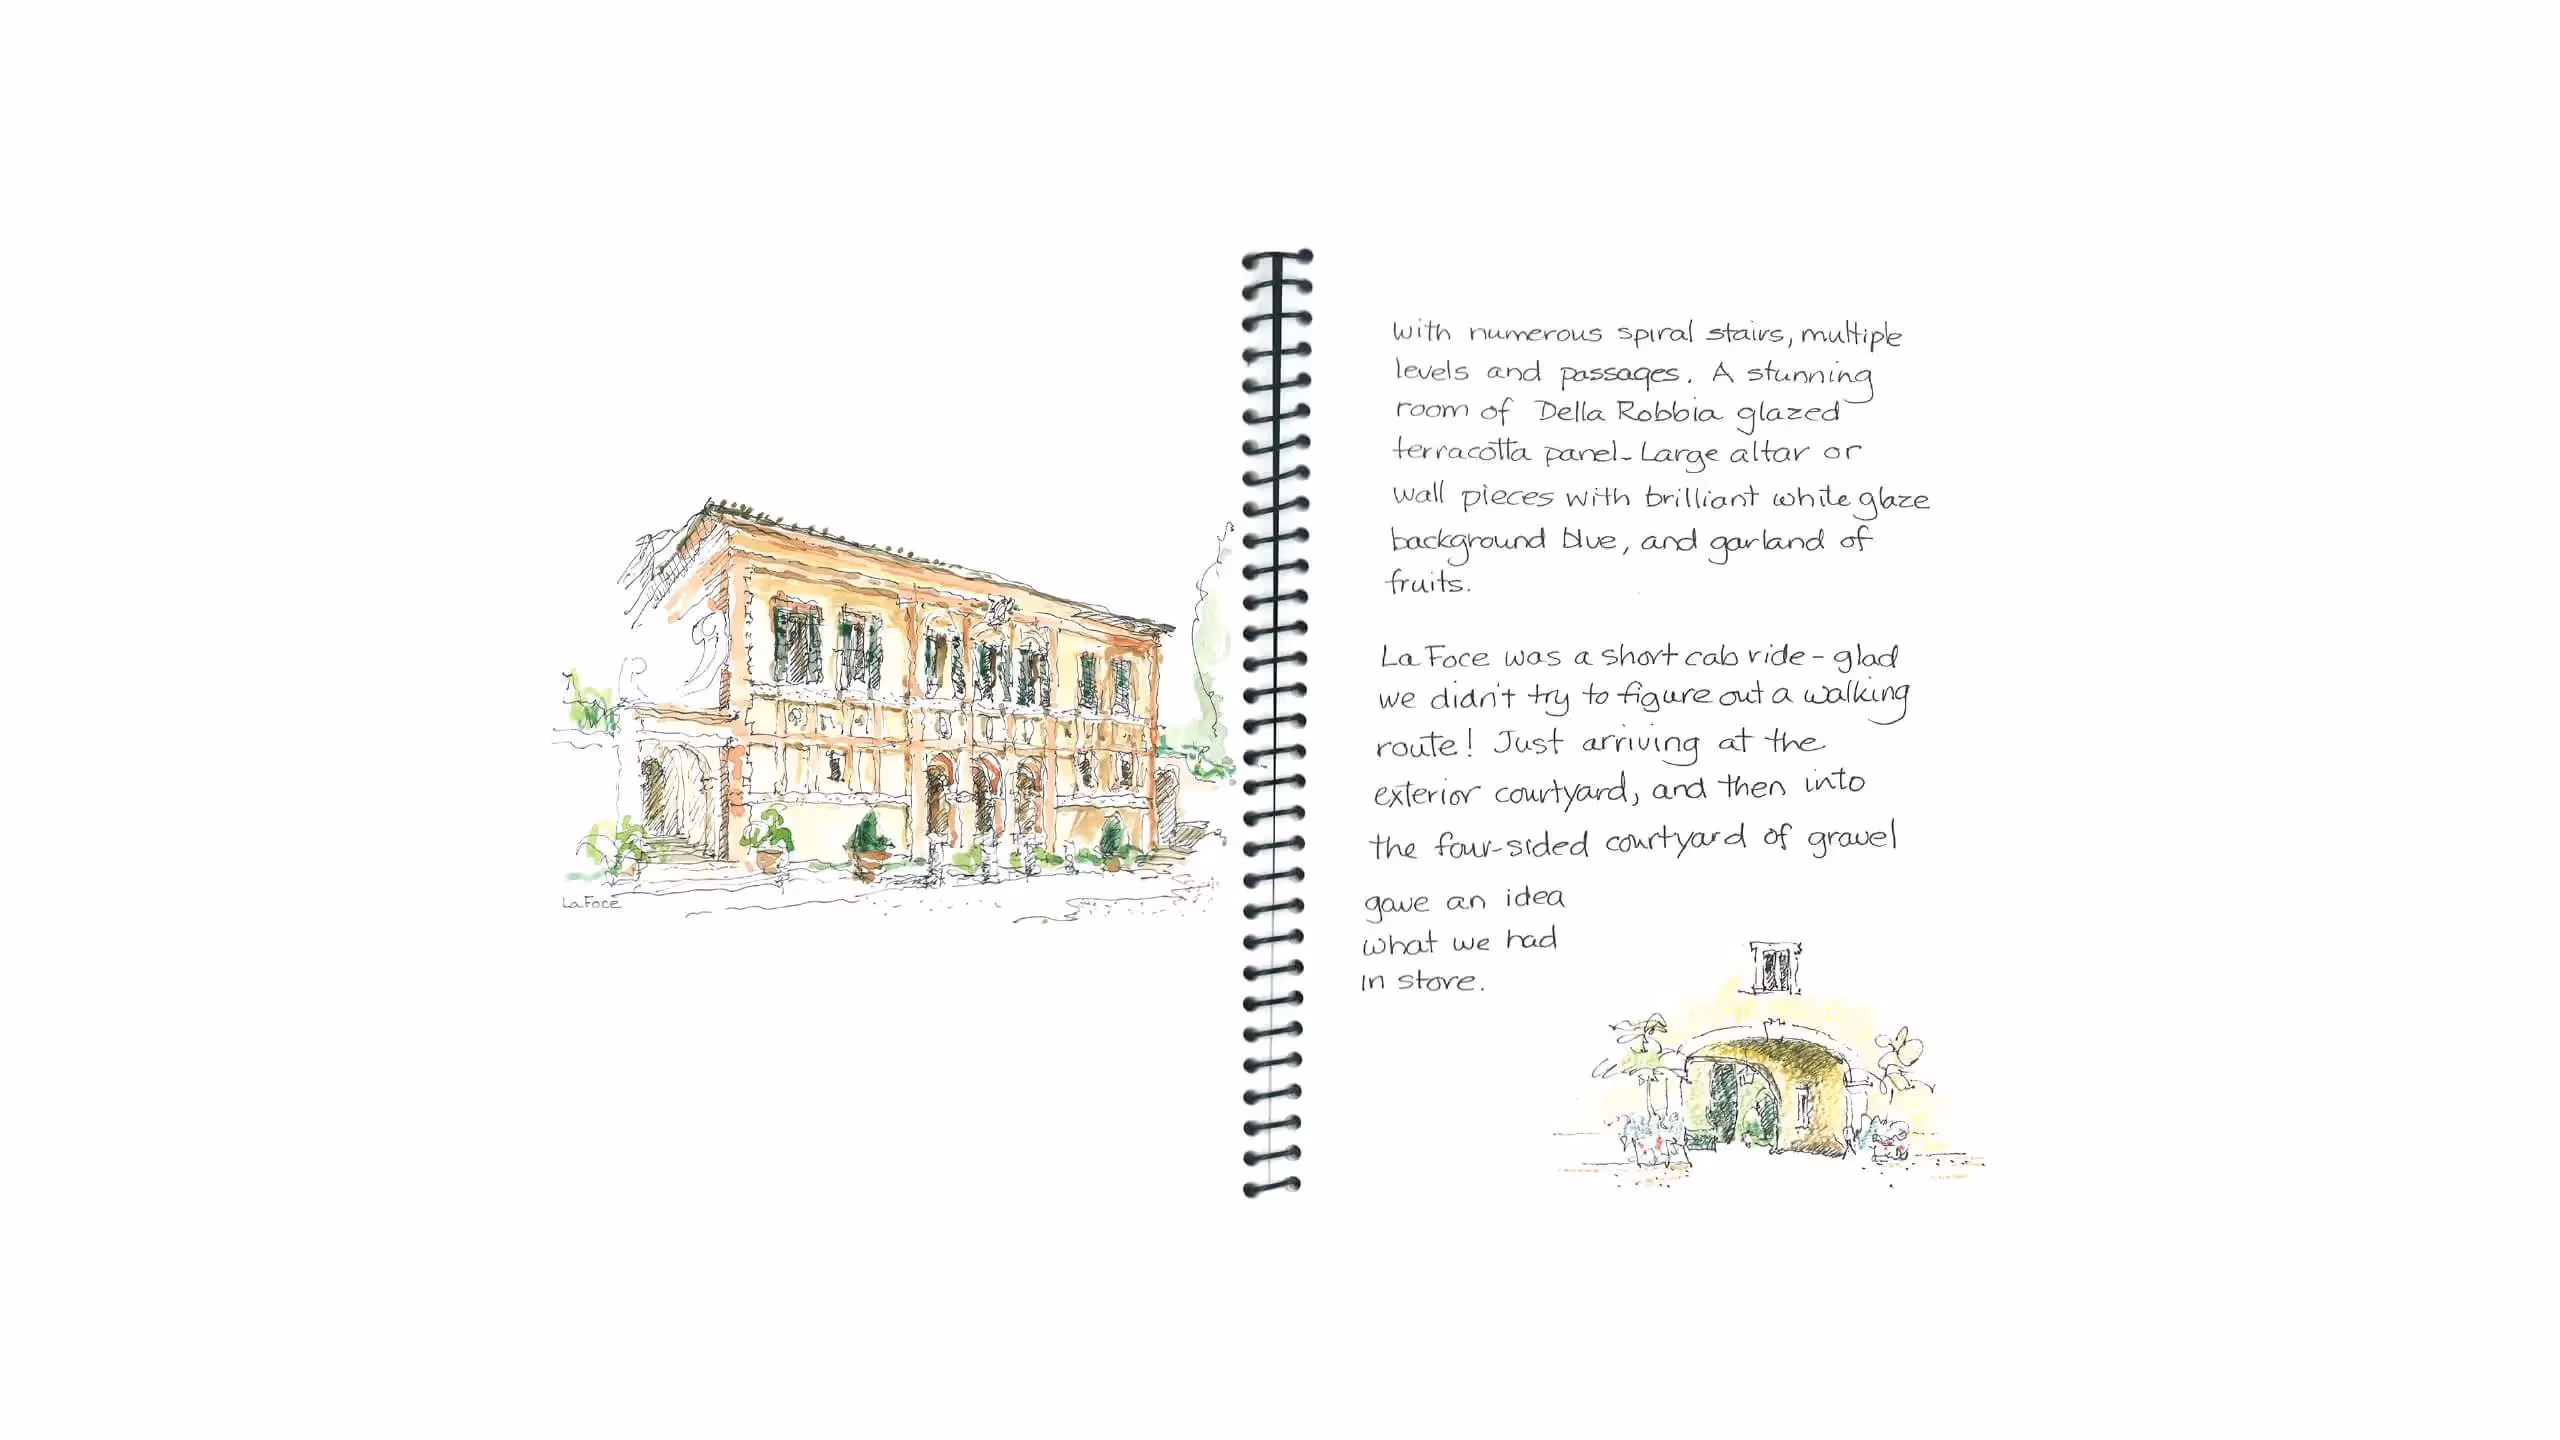 La Foce
with numerous spiral stairs, multiple
levels and passages. A stunning
room of Della Robbia glazed
terracotta panel - Large altar or
wall pieces with brilliant white glaze
background blue, and garland of
fruits.
La Foce was a short cab ride - glad
we didn't try to figure out a walking
route! Just arriving at the
exterior courtyard, and then into
the four-sided courtyard of gravel
gave an idea
what we had
in store.